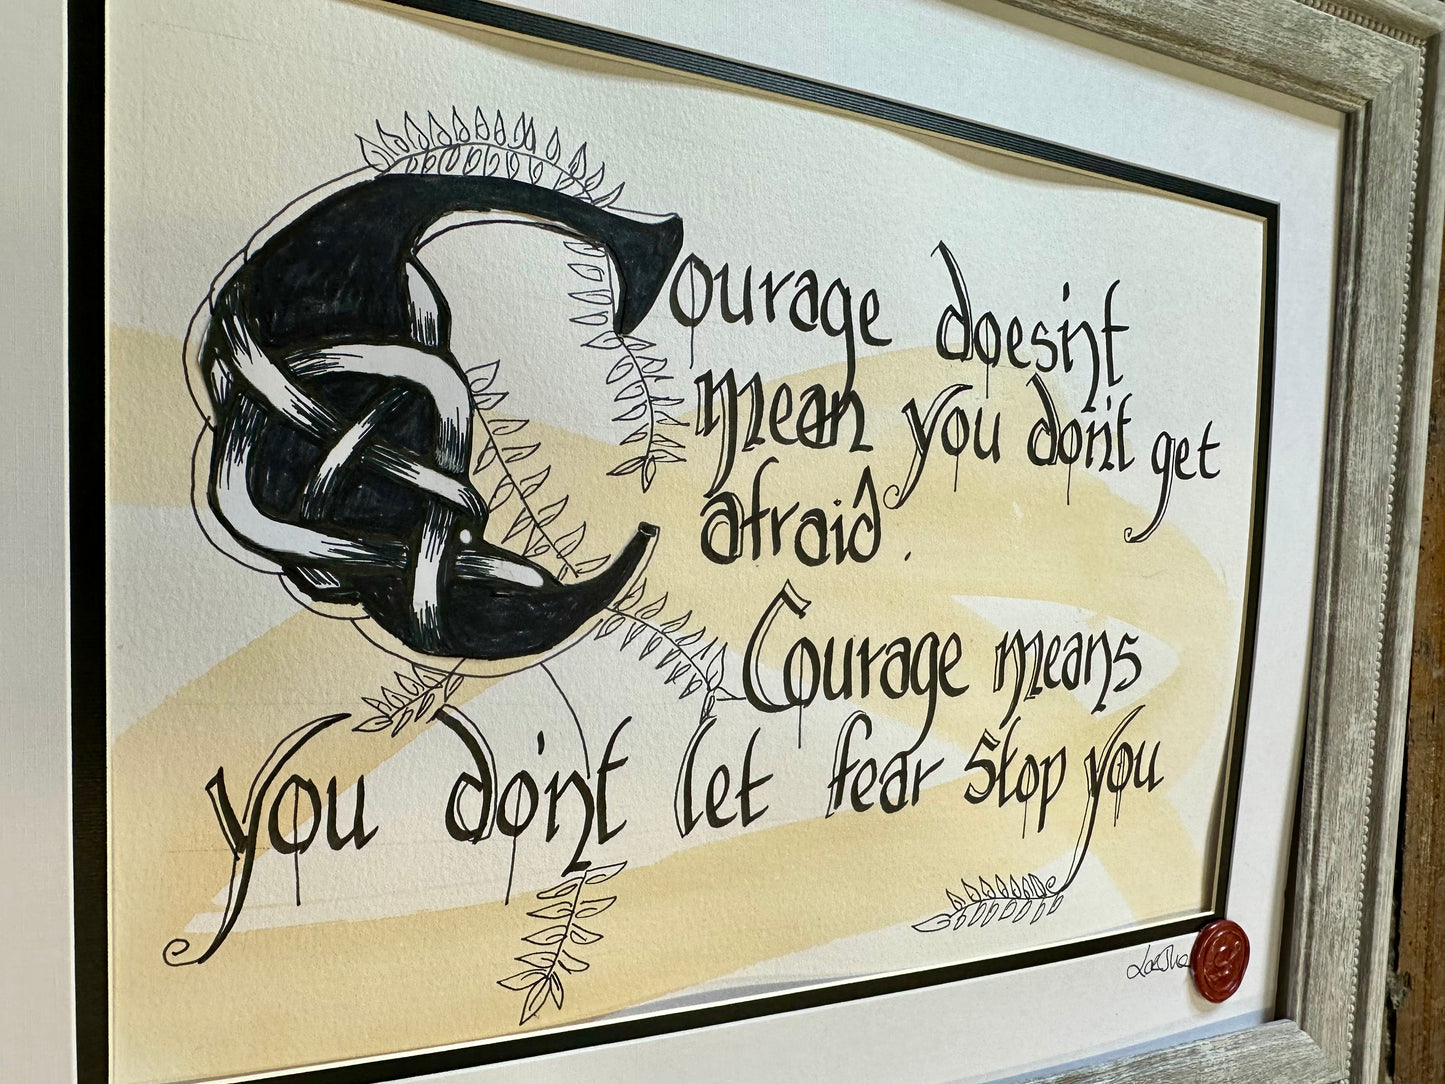 Courage doesn't
mean you don't get
afraid.
Courage means
you don't let fear stop you